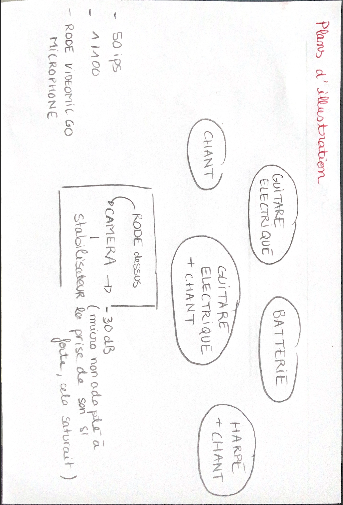 Plans d'illustration
GUITARE
ELECTRIQUE
BATTERIE
CHANT
GUITARE
ELECTRIQUE
+ CHANT
HARPE
+ CHANT
- 50 ips
- 1/100
- RODE VIDEOMIC GO
MICROPHONE
RODE dessus
CAMERA → - 30 dB
(micro non adapté à
la prise de son si
forte, cela saturait)
stabilisateur